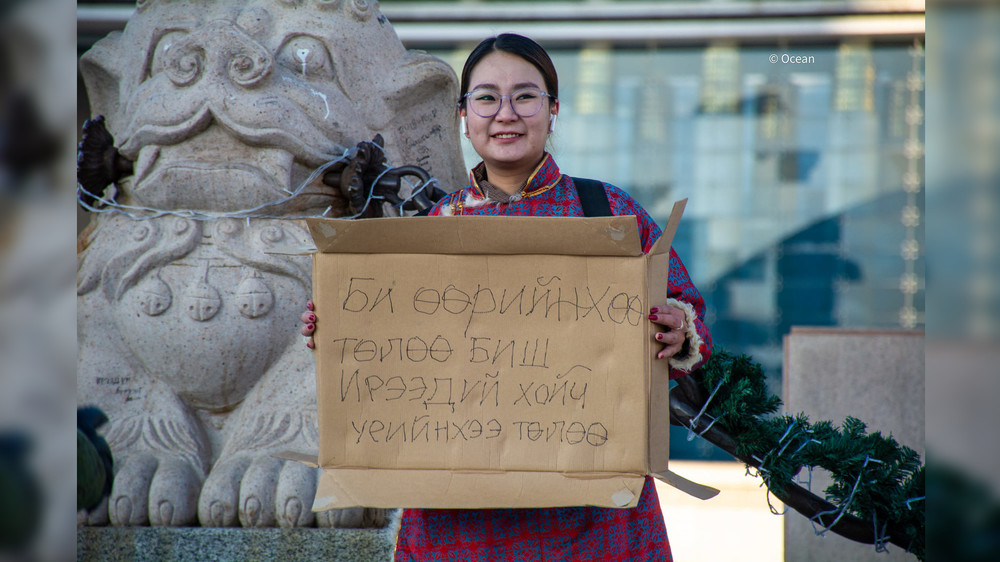 © Ocean
Би өөрийнхөө
төлөө биш
Ирээдүй хойч
үеийнхээ төлөө